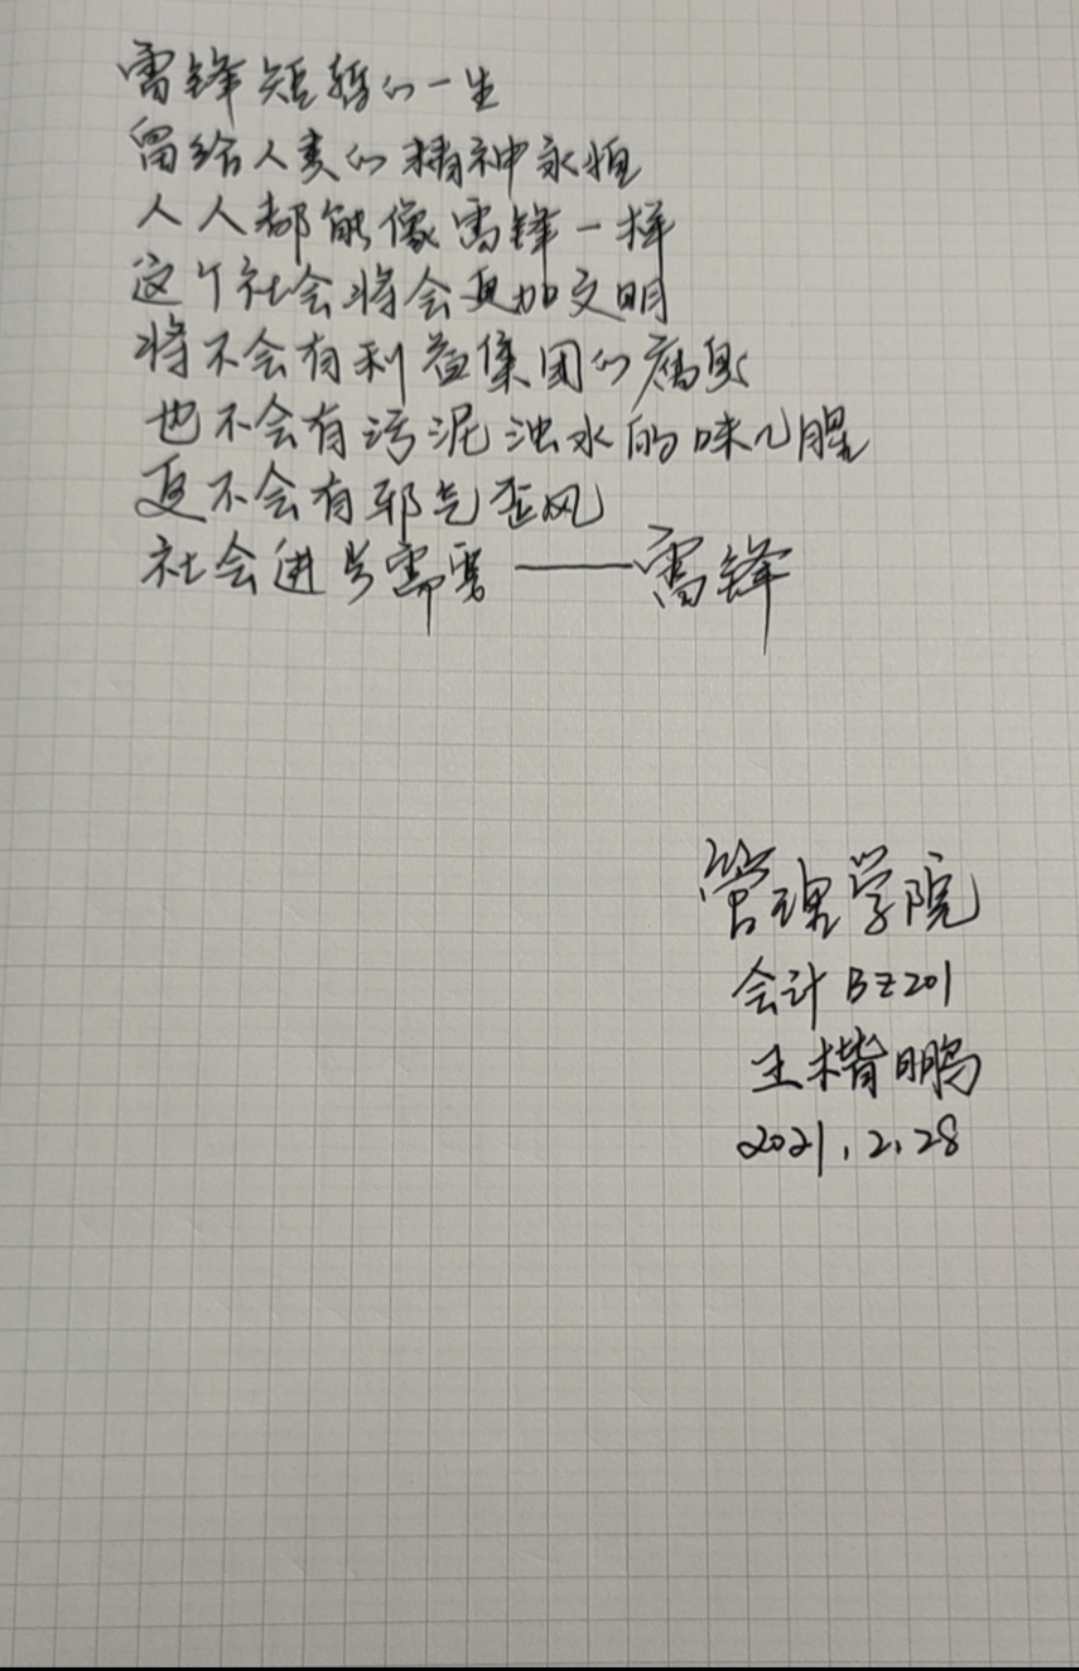 雷锋短暂的一生
留给人类的精神永恒
人人都能像雷锋一样
这个社会将会更加文明
将不会有利益集团的腐臭
也不会有污泥浊水的味儿腥
更不会有邪气歪风
社会进步需要——雷锋
管理学院
会计BZ201
王楷鹏
2021.2.28